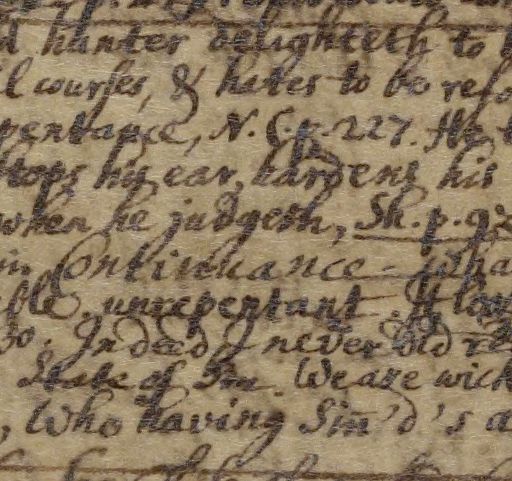 hanter delighteth to
courses, & hates to be refo
pentance, N. C. p. 227. He
stops his ear, hardens his
when he judgeth, Sh. p. 92
in Continuance - wha
able. unrepentant.
30. Indeed I never did re
State of Sin. We are wick
, Who having Siñ'd's a